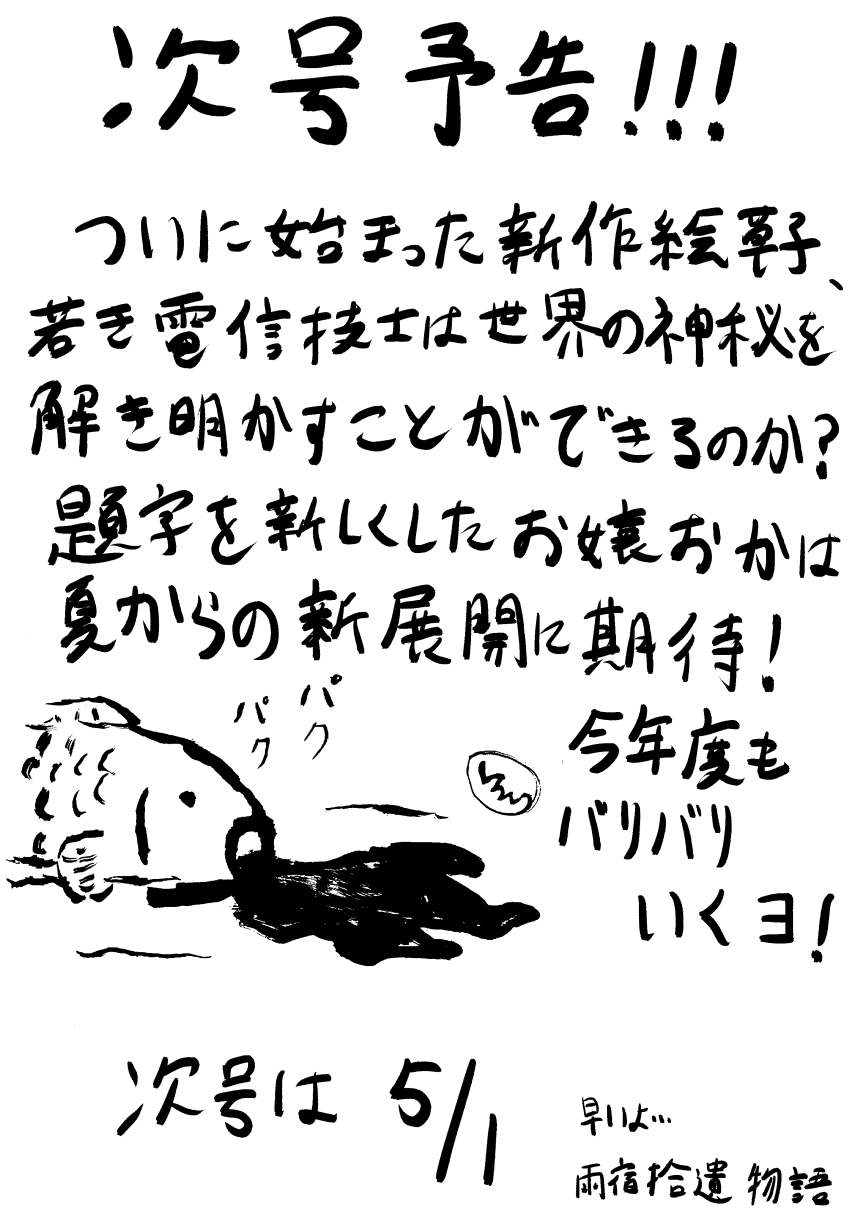 次号予告!!!
ついに始まった新作絵草子、
若き電信技士は世界の神秘を
解き明かすことができるのか?
題字を新しくしたお嬢おかは
夏からの新展開に期待!
パク
パク
今年度も
バリバリ
いくヨ!
次号は 5/1
早いよ…
雨宿拾遺物語